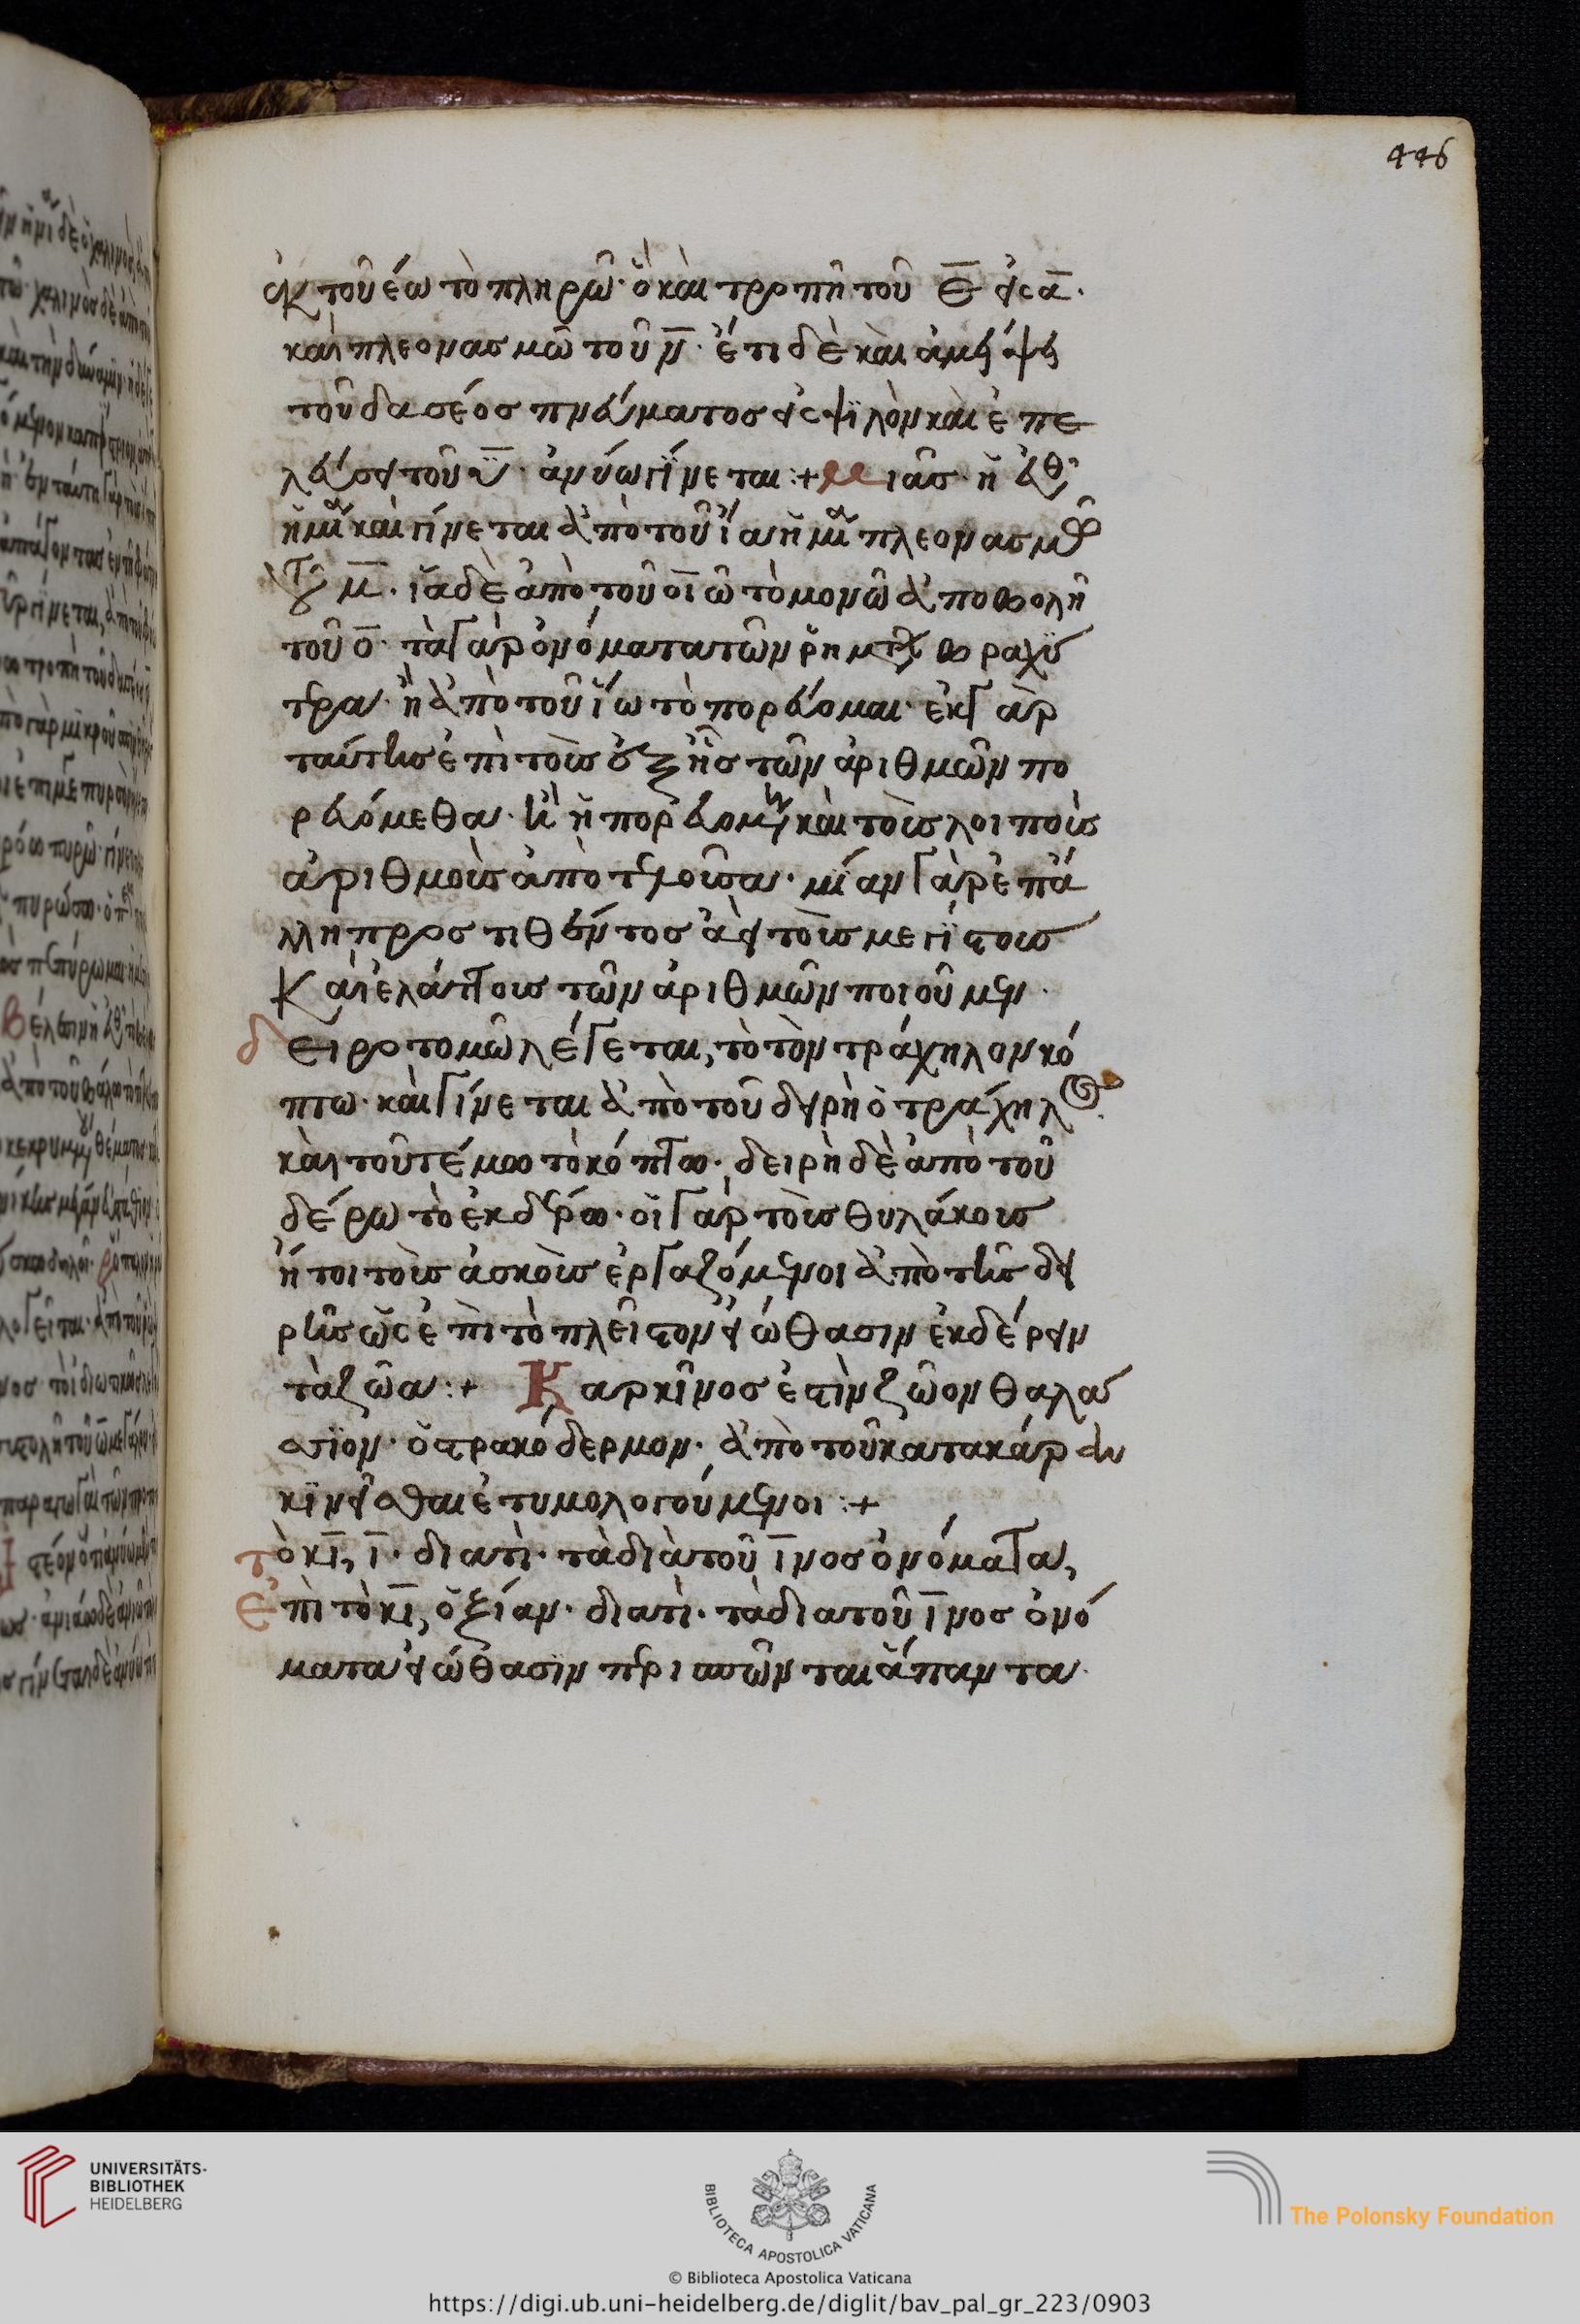 446
ἐκ τοῦ ἕω τὸ πληρῶ· ὃ καὶ τροπῆ τοῦ ε̅ εἰς α̅·
καὶ πλεονασμῶ τοῦ ν̅· ἔτι δὲ καὶ ἀμείψει
τοῦ δασέος πνεύματος εἰς ψϊλὸν καὶ ἐπε
λεύσει τοῦ υ̅· ἀνύω γίνεται :+ μιᾶς· ἡ εὐθ
ἡ μία καὶ γίνεται ἀπὸ τοῦ ἴα ἡ μία πλεονασμῶ
τοῦ μ̅· ἴα δὲ ἀπὸ τοῦ οἰῶ τὸ μονῶ ἀποβολῆ
τοῦ ο̅· τὰ γὰρ ὀνόματα τῶν ῥημάτων βραχύ
τερα· ἢ ἀπὸ τοῦ ἴω τὸ πορεύομαι· ἐκ γὰρ
ταύτης ἐπὶ τοῖς ἑξῆς τῶν ἀριθμῶν πο
ρευόμεθα· ἢ ἡ πορευομένη καὶ τοῖς λοιποῖς
ἀριθμοῖς ἀποτελοῦσα· μίαν γὰρ ἐπά
λληπροστιθέντος ἀεὶ τοῖς μεγίστοις
καὶ ἐλάττοις τῶν ἀριθμῶν ποιοῦμεν·
δειροτομῶ λέγεται, τὸ τὸν τράχηλον κό
πτω· καὶ γίνεται ἀπὸ τοῦ δειρὴ ὁ τράχηλος
καὶ τοῦ τέμω τὸ κόπτω· δειρὴ δὲ ἀπὸ τοῦ
δέρω τὸ ἐκδέρω· οἱ γὰρ τοῖς θυλάκοις
ἤτοι τοῖς ἀσκοῖς ἐργαζόμενοι ἀπὸ τῆς δει
ρῆς ὡς ἐπὶ τὸ πλεῖστον εἰώθασιν ἐκδέρειν
τὰ ζῶα :+ Καρκῖνος ἐστὶν ζῶον θαλά
σσϊον· ὀστρακόδερμον· ἀπὸ τοῦ κατακάραν
κϊνεῖσθαι ἐτυμολογούμενοι :+
τὸ κι̅, ι̅· διατὶ· τὰ διὰ τοῦ ι̅νος ὀνόματα,
Ἐπὶ τὸ κι̅, ὀξίαν· διατὶ· τὰ δια τοῦ ι̅νος ὀνό
ματα εἰώθασϊν περισπῶνται ἅπαντα·
UNIVERSITÄTS-
BIBLIOTHEK
HEIDELBERG
BIBLIOTECA APOSTOLICA VATICANA
The Polonsky Foundation
© Biblioteca Apostolica Vaticana
https://digi.ub.uni-heidelberg.de/diglit/bav_pal_gr_223/0903